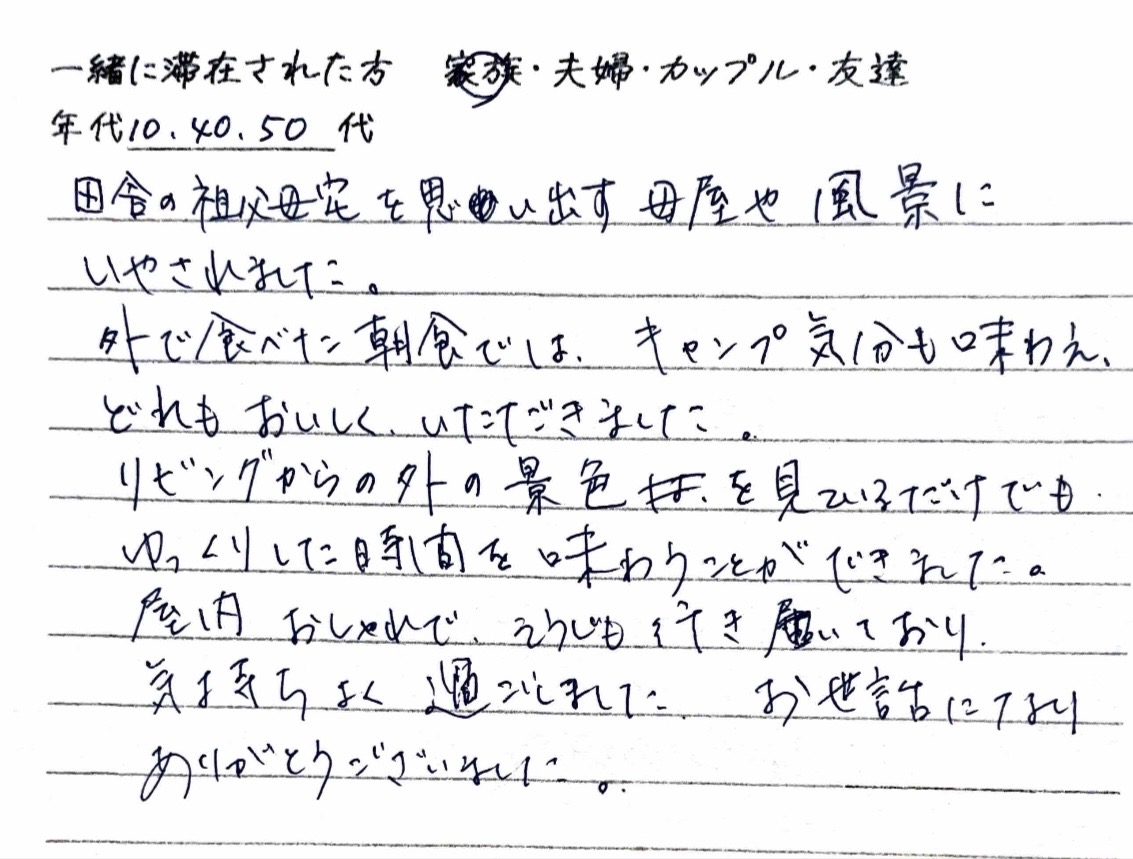 一緒に滞在された方 家族・夫婦・カップル・友達
年代10.40.50代
田舎の祖父母宅を思い出す母屋や風景に
いやされました。
外で食べた朝食では、キャンプ気分も味わえ、
どれもおいしく、いただきました。
リビングからの外の景色を見ているだけでも
ゆっくりした時間を味わうことができました。
屋内おしゃれで、そうじも行き届いており、
気持ちよく過ごしました。お世話になり
ありがとうございました。